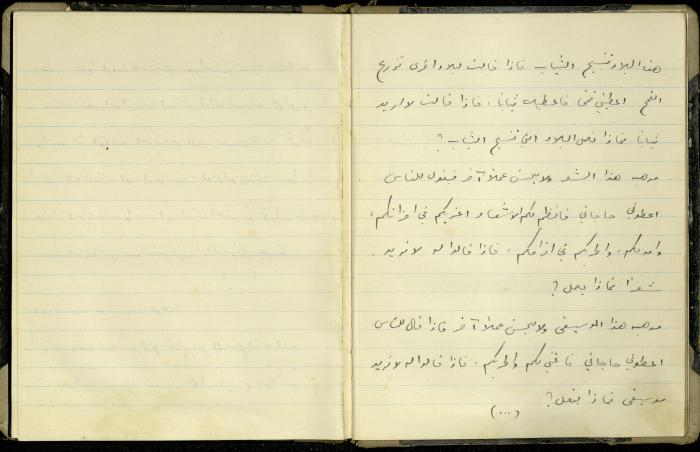 هذه البلاد تنسج الثياب فاذا قالت لبلاد اخرى تزرع
القمح اعطيني قمحا فاعطيك ثيابا، فاذا قالت لا اريد
ثيابا فماذا تفعل البلاد التي تنسج الثياب؟
موهبة هذا الشعر ولا يحسن عملا آخر فيقول للناس
اعطوني حاجاتي فانظم لكم الاشعار اعزيكم في احزانكم،
وامدحكم، واطربكم في افراحكم، فاذا قالوا له لا نريد
شعرا فماذا يعمل؟
موهبة هذا الموسيقى ولا يحسن عملا آخر فاذا قال للناس
اعطوني حاجاتي فاغني لكم واطربكم، فاذا قالوا له لا نريد
موسيقى فماذا يفعل؟
(...)